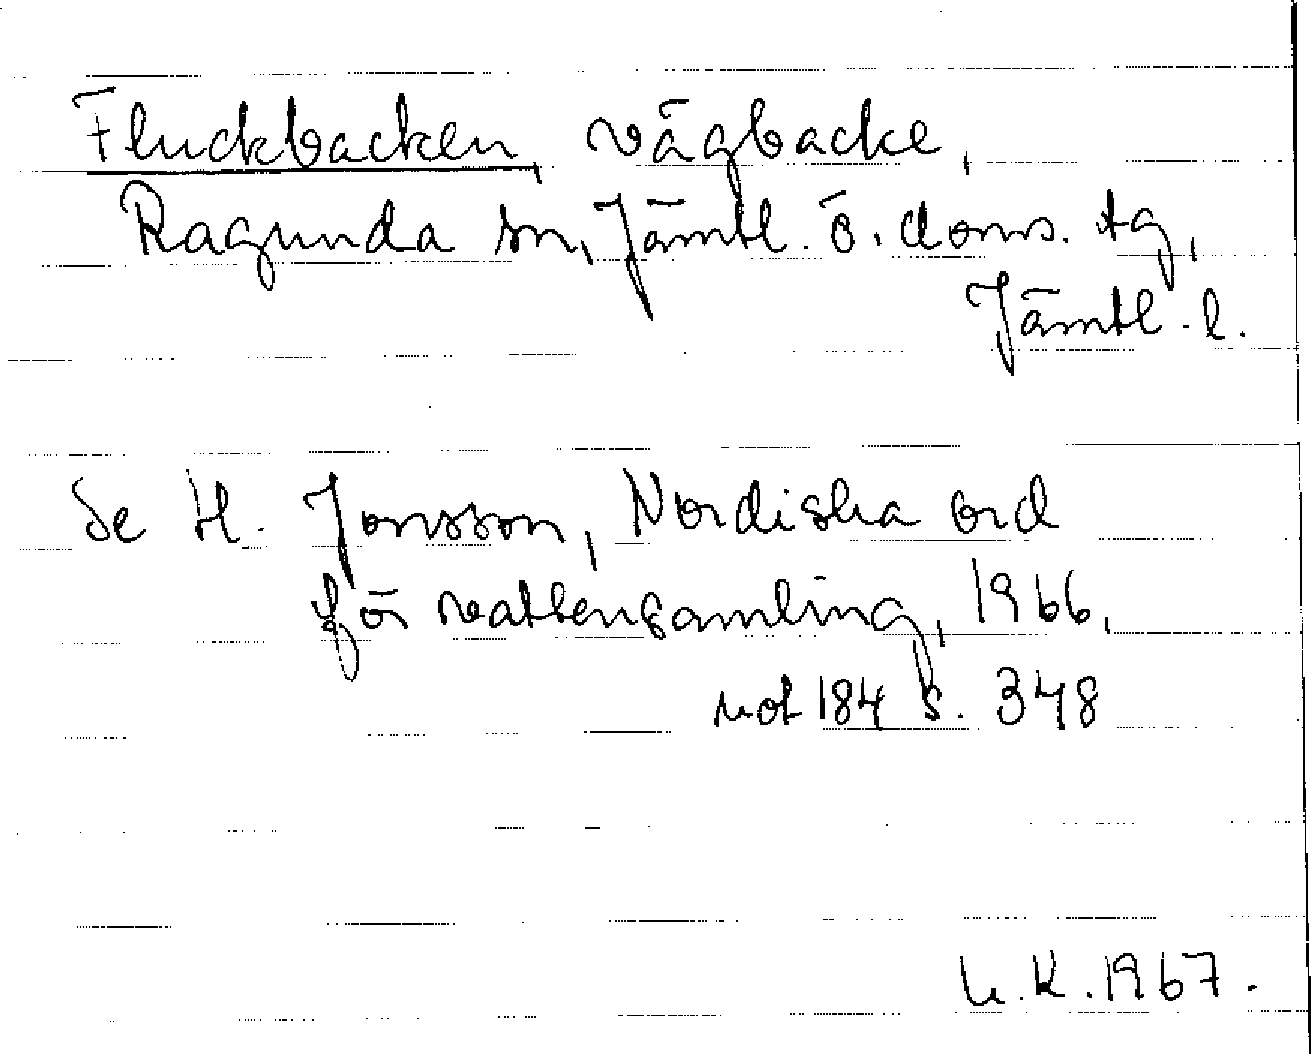 Fluckbacken, vägbacke,
Ragunda sn, Jämtl. ö. doms. tg,
Jämtl. l.
Se H. Jonsson, Nordiska ord
för vattensamling, 1966,
not 184 s. 348
U.K. 1967.